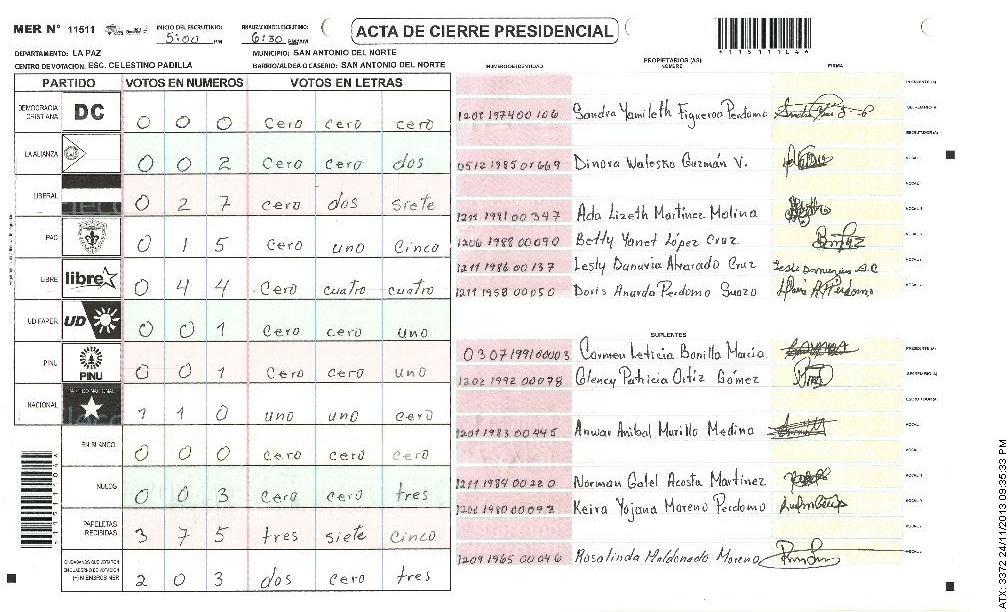 MER N° 11511 INICIO DEL ESCRUTINIO: 5:00 PM FINALIZACION DEL ESCRUTINIO: 6:30 PM/AM ACTA DE CIERRE PRESIDENCIAL
DEPARTAMENTO: LA PAZ MUNICIPIO: SAN ANTONIO DEL NORTE
CENTRO DE VOTACION: ESC. CELESTINO PADILLA BARRIO/ALDEA O CASERIO: SAN ANTONIO DEL NORTE
PARTIDO VOTOS EN NUMEROS VOTOS EN LETRAS
DEMOCRACIA CRISTIANA DC 0 0 0 cero cero cero
LA ALIANZA 0 0 2 cero cero dos
LIBERAL 0 2 7 cero dos siete
PAC 0 1 5 cero uno cinco
LIBRE libre 0 4 4 cero cuatro cuatro
UD FAPER UD 0 0 1 cero cero uno
PINU PINU 0 0 1 cero cero uno
NACIONAL 1 1 0 uno uno cero
EN BLANCO 0 0 0 cero cero cero
NULOS 0 0 3 cero cero tres
PAPELETAS RECIBIDAS 3 7 5 tres siete cinco
CIUDADANOS QUE VOTARON EN CUADERNO DE VOTACION (+) MIEMBROS MER 2 0 3 dos cero tres
NUMERO DE IDENTIDAD PROPIETARIOS (AS) NOMBRE FIRMA
PRESIDENTE (A)
1208 1974 00106 Sandra Yamileth Figueroa Perdomo SECRETARIO (A)
ESCRUTADOR (A)
0512 1985 01669 Dinora Waleska Guzmán V. VOCAL
VOCAL
1211 1991 00347 Ada Lizeth Martinez Molina VOCAL
1206 1988 00090 Betty Yanet López Cruz VOCAL
1211 1986 00137 Lesly Danuvia Alvarado Cruz VOCAL
1211 1958 00050 Doris Anarda Perdomo Suazo VOCAL
SUPLENTES
0307 1991 00003 Carmen Leticia Bonilla Macía PRESIDENTE (A)
1202 1992 00078 Glency Patricia Ortiz Gómez SECRETARIO (A)
ESCRUTADOR (A)
1201 1983 00445 Anwar Anibal Murillo Medina VOCAL
VOCAL
1211 1984 00220 Norman Galel Acosta Martinez VOCAL
1206 1980 00092 Keira Yojana Moreno Perdomo VOCAL
VOCAL
1209 1965 00046 Rosalinda Maldonado Moreno VOCAL
ATX: 3372 24/11/2013 09:35:33 PM